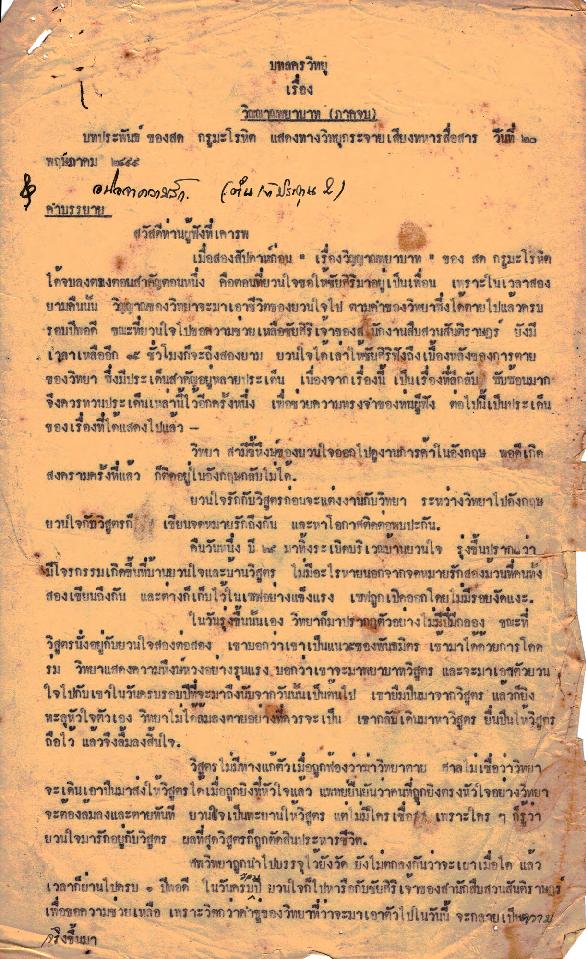 บทละครวิทยุ
เรื่อง
วิญญาณพยาบาท (ภาคจบ)
บทประพันธ์ ของสด กูรมะโรหิต แสดงทางวิทยุกระจายเสียงทหารสื่อสาร วันที่ ๒๐
พฤษภาคม ๒๔๙๙
คำบรรยาย
สวัสดีท่านผู้ฟังที่เคารพ
เมื่อสองสัปดาห์ก่อน "เรื่องวิญญาณพยาบาท" ของ สด กูรมะโรหิต
ได้จบลงตรงตอนสำคัญตอนหนึ่ง คือตอนที่ยวนใจขอให้ชัยศิริมาอยู่เป็นเพื่อน เพราะในเวลาสอง
ยามคืนนั้น วิญญาณของวิทยาจะมาเอาชีวิตของยวนใจไป ตามคำของวิทยาซึ่งได้ตายไปแล้วครบ
รอบปีพอดี ขณะที่ยวนใจไปขอความช่วยเหลือชัยศิริเจ้าของสำนักงานสืบสวนสันติราษฎร์ ยังมี
เวลาเหลืออีก ๑๕ ชั่วโมงก็จะถึงสองยาม ยวนใจได้เล่าให้ชัยศิริฟังถึงเบื้องหลังของการตาย
ของวิทยา ซึ่งมีประเด็นสำคัญอยู่หลายประเด็น เนื่องจากเรื่องนี้ เป็นเรื่องที่ลึกลับ ซับซ้อนมาก
จึงควรทวนประเด็นเหล่านี้ไว้อีกครั้งหนึ่ง เพื่อช่วยความทรงจำของท่านผู้ฟัง ต่อไปนี้เป็นประเด็น
ของเรื่องที่ได้แสดงไปแล้ว -
วิทยา สามีขี้หึงษ์ของยวนใจออกไปดูงานการค้าในอังกฤษ พอดีเกิด
สงครามครั้งที่แล้ว ก็ติดอยู่ในอังกฤษกลับไม่ได้.
ยวนใจรักกับวิสูตรก่อนจะแต่งงานกับวิทยา ระหว่างวิทยาไปอังกฤษ
ยวนใจกับวิสูตรก็ เขียนจดหมายรักถึงกัน และหาโอกาสติดต่อพบปะกัน.
คืนวันหนึ่ง ปี ๒๔ มาทิ้งระเบิดบริเวณบ้านยวนใจ รุ่งขึ้นปรากฏว่า
มีโจรกรรมเกิดขึ้นที่บ้านยวนใจและบ้านวิสูตร ไม่มีอะไรหายนอกจากจดหมายรักสองม้วนที่คนทั้ง
สองเขียนถึงกัน และต่างก็เก็บไว้ในเซฟอย่างแข็งแรง เซฟถูกเปิดออกโดยไม่มีรอยงัดแงะ.
ในวันรุ่งขึ้นนั้นเอง วิทยาก็มาปรากฏตัวอย่างไม่มีปี่มีกลอง ขณะที่
วิสูตรนั่งอยู่กับยวนใจสองต่อสอง เขาบอกว่าเขาเป็นแนวของพันธมิตร เข้ามาได้ด้วยการโดด
ร่ม วิทยาแสดงความหึงษ์หวงอย่างรุนแรง บอกว่าเขาจะมาพยาบาทวิสูตร และจะมาเอาตัวยวน
ใจไปกับเขาในวันครบรอบปีที่จะมาถึงนับจากวันนั้นเป็นต้นไป เขายื่นปืนมาจากวิสูตร แล้วก็ยิง
ทะลุหัวใจตัวเอง วิทยาไม่ได้ล้มลงตายอย่างที่ควรจะเป็น เขากลับเดินมาหาวิสูตร ยื่นปืนให้วิสูตร
ถือไว้ แล้วจึงล้มลงสิ้นใจ.
วิสูตรไม่มีทางแก้ตัวเมื่อถูกฟ้องว่าฆ่าวิทยาตาย ศาลไม่เชื่อว่าวิทยา
จะเดินเอาปืนมาส่งให้วิสูตรได้เมื่อถูกยิงที่หัวใจแล้ว แพทย์ยืนยันว่าคนที่ถูกยิงตรงหัวใจอย่างวิทยา
จะต้องล้มลงและตายทันที ยวนใจเป็นพะยานให้วิสูตร แต่ไม่มีใครเชื่อ เพราะใคร ๆ ก็รู้ว่า
ยวนใจมารักอยู่กับวิสูตร ผลที่สุดวิสูตรก็ถูกตัดสินประหารชีวิต.
ศพวิทยาถูกนำไปบรรจุไว้ยังวัด ยังไม่ตกลงกันว่าจะเผาเมื่อใด แล้ว
เวลาก็ผ่านไปครบ ๑ ปีพอดี ในวันครบปี ยวนใจก็ไปหารือกับชัยศิริ เจ้าของสำนักสืบสวนสันติราษฎร์
เพื่อขอความช่วยเหลือ เพราะวิตกว่าคำขู่ของวิทยาที่ว่าจะมาเอาตัวไปในวันนี้ จะกลายเป็นความ
จริงขึ้นมา